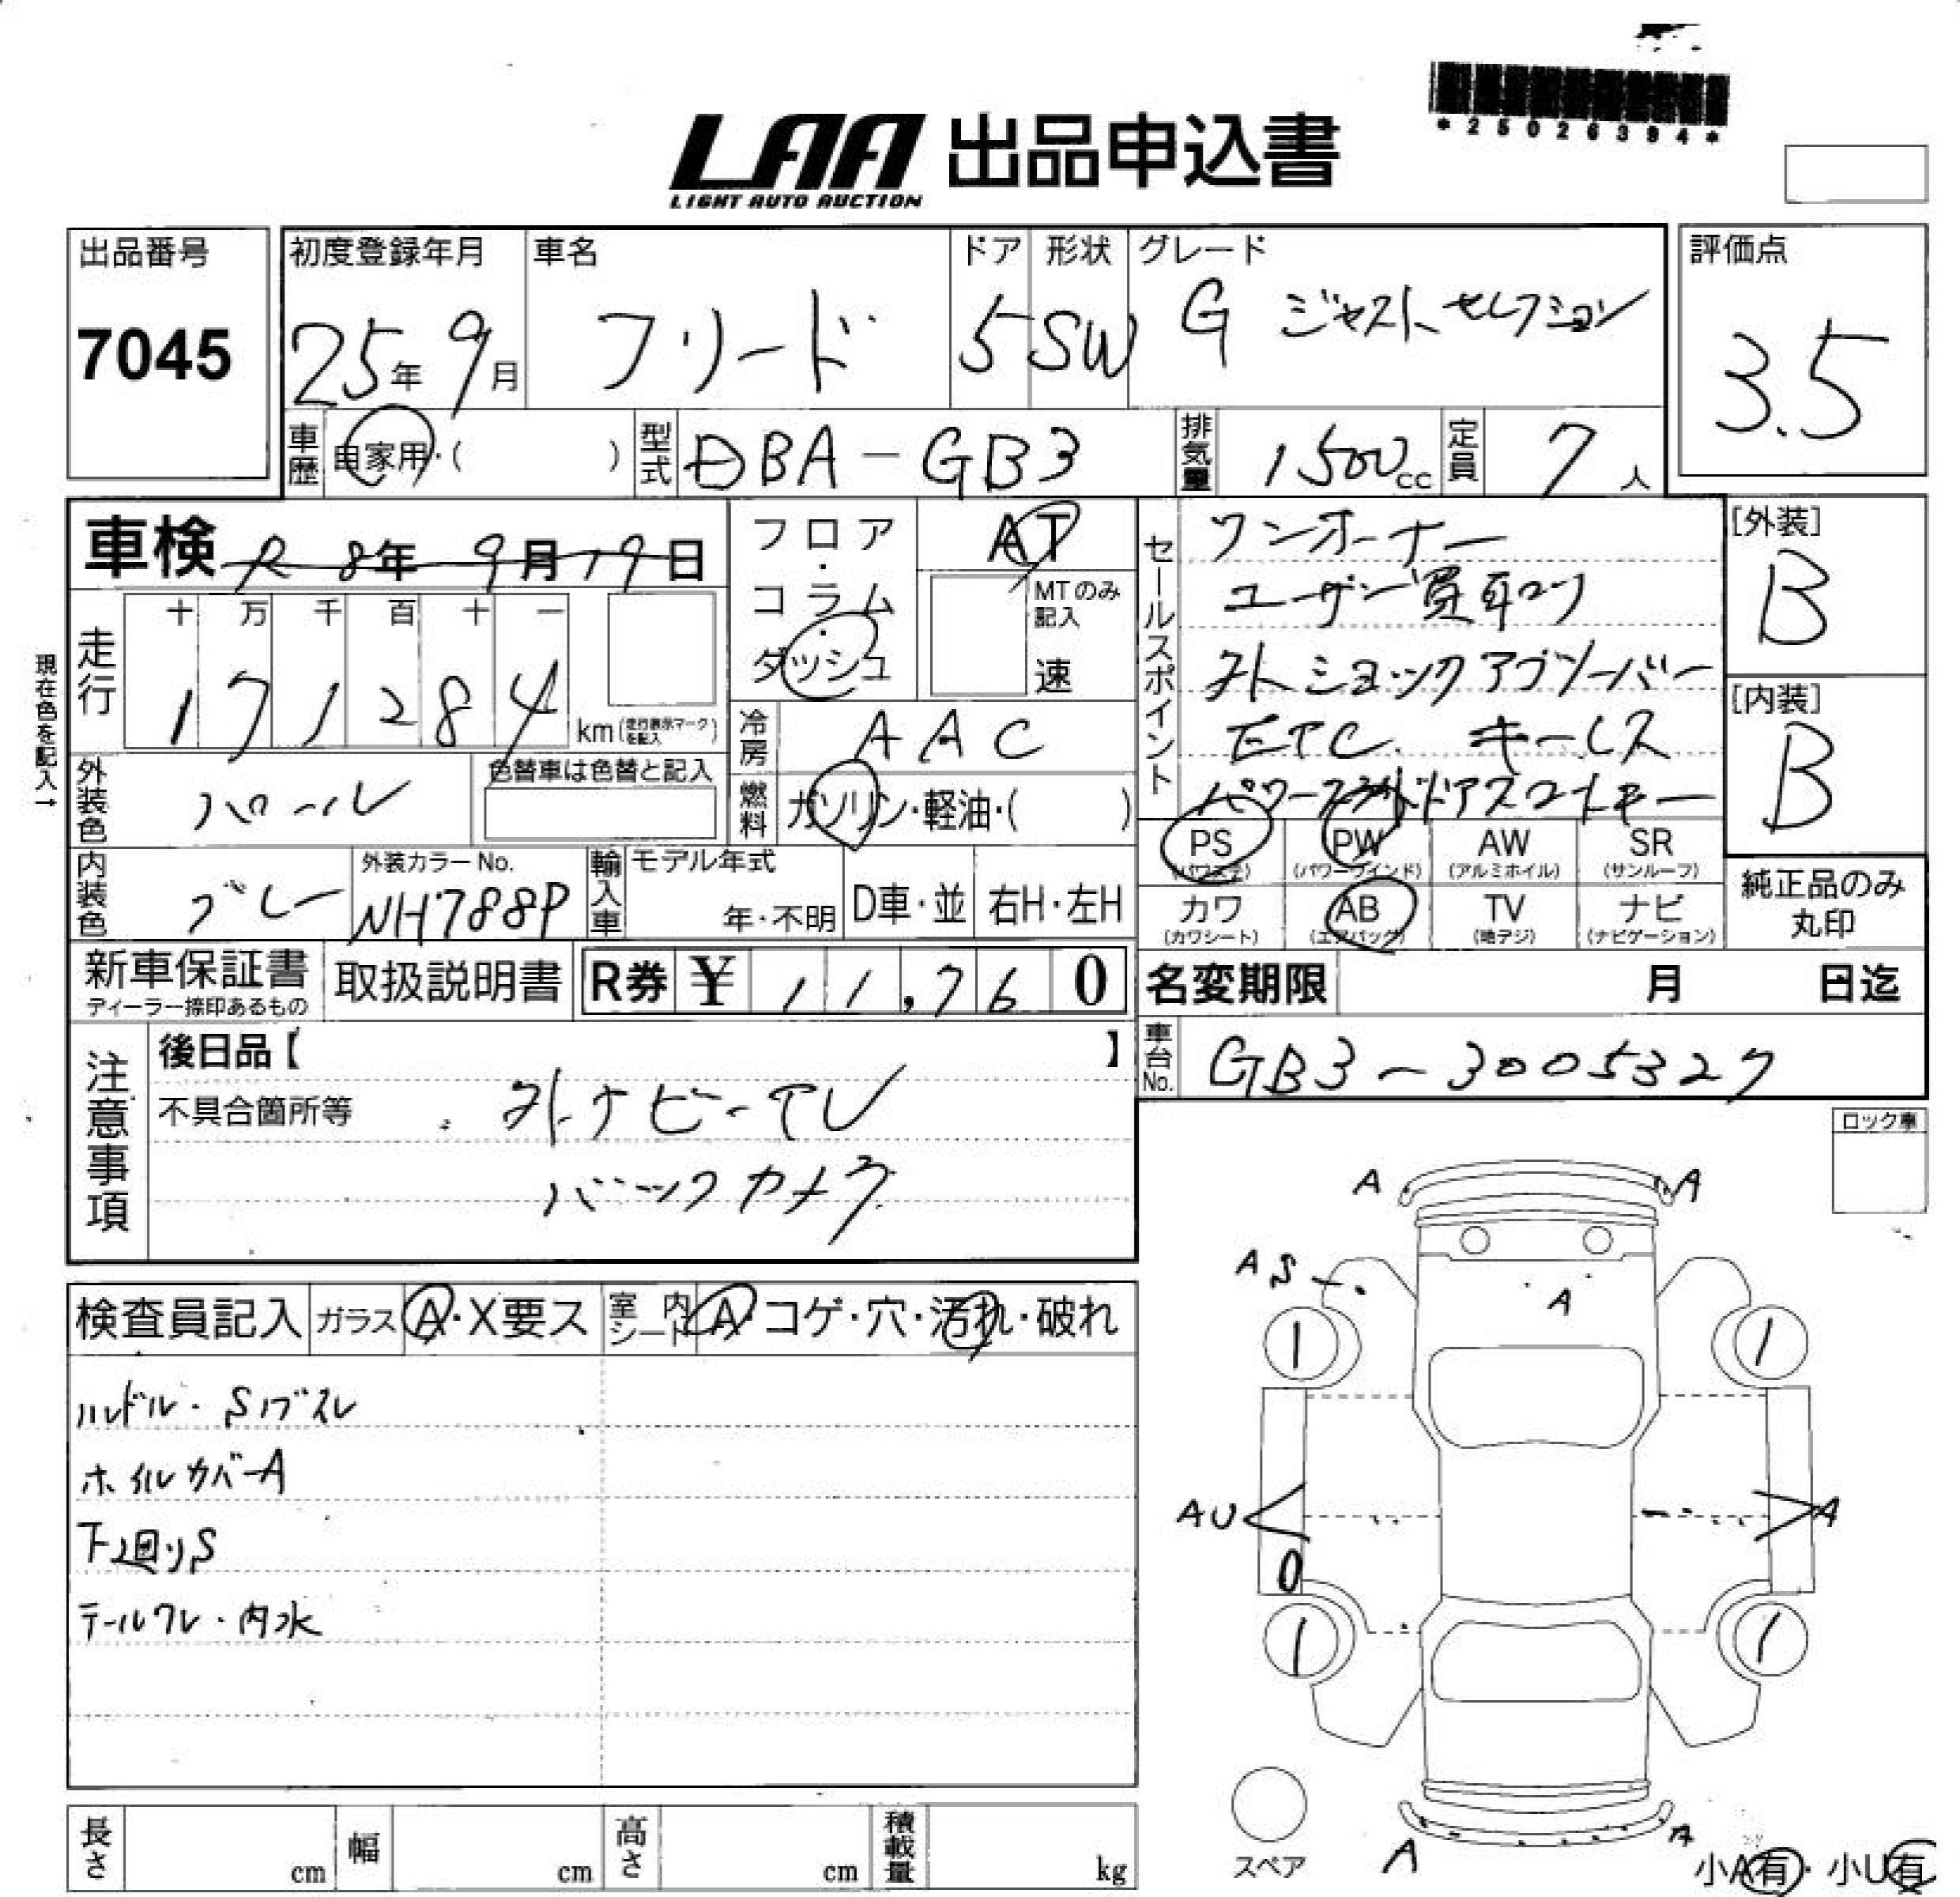 *25026394*
LAA 出品申込書
LIGHT AUTO AUCTION
出品番号 7045
初度登録年月 25年 9月
車名 フリード
ドア 5
形状 SW
グレード G ジャストセレクション
評価点 3.5
車歴 自家用・( )
型式 DBA-GB3
排気量 1500cc
定員 7人
車検 R8年 9月19日
フロア・コラム・ダッシュ
AT
MTのみ記入
速
走行 十 万 千 百 十 一
171284 km(走行表示マークを記入)
現在色を記入→
冷房 AAC
燃料 ガソリン・軽油・( )
外装色 パール
色替車は色替と記入
内装色 グレー
外装カラーNo. NH788P
輸入車 モデル年式 年・不明 D車・並 右H・左H
セールスポイント
ワンオーナー
ユーザー買取り
外ショックアブソーバー
ETC. キーレス
パワースライドドア スマートキー
PS (パワステ) PW (パワーウインド) AW (アルミホイル) SR (サンルーフ)
カワ (カワシート) AB (エアバッグ) TV (地デジ) ナビ (ナビゲーション)
[外装] B
[内装] B
純正品のみ丸印
新車保証書 ディーラー捺印あるもの
取扱説明書
R券 ¥ 11,760
名変期限 月 日迄
車台No. GB3-3005327
注意事項
後日品【 】
不具合箇所等 外ナビ-TV
バックカメラ
ロック車
検査員記入 ガラス A・X要ス 室内シート A・コゲ・穴・汚れ・破れ
ハンドル・Sノブスレ
ホイルカバーA
下廻りS
テールワレ・内水
A A
AS
A
1 1
AU A
0
1 1
A A
スペア
小A有・小U有
長さ cm 幅 cm 高さ cm 積載量 kg